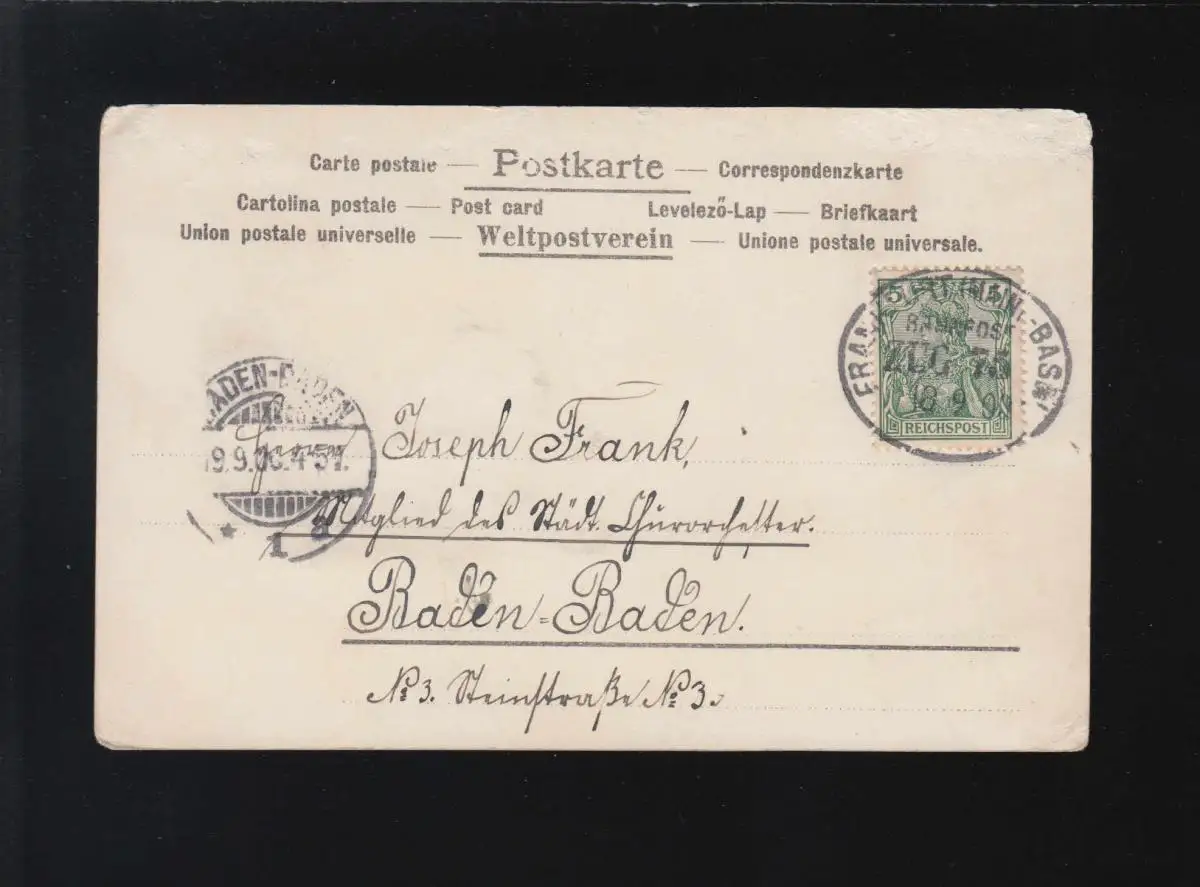 Carte postale — Postkarte — Correspondenzkarte
Cartolina postale — Post card Levelező-Lap — Briefkaart
Union postale universelle — Weltpostverein — Unione postale universale.
5 5
BAHNPOST
ZUG
18 9 0
REICHSPOST
BADEN-BADEN
19.9.0
* 1 a
Herrn Joseph Frank,
Mitglied des Städt. Churorchester.
Baden-Baden.
No 3. Steinstraße No 3.